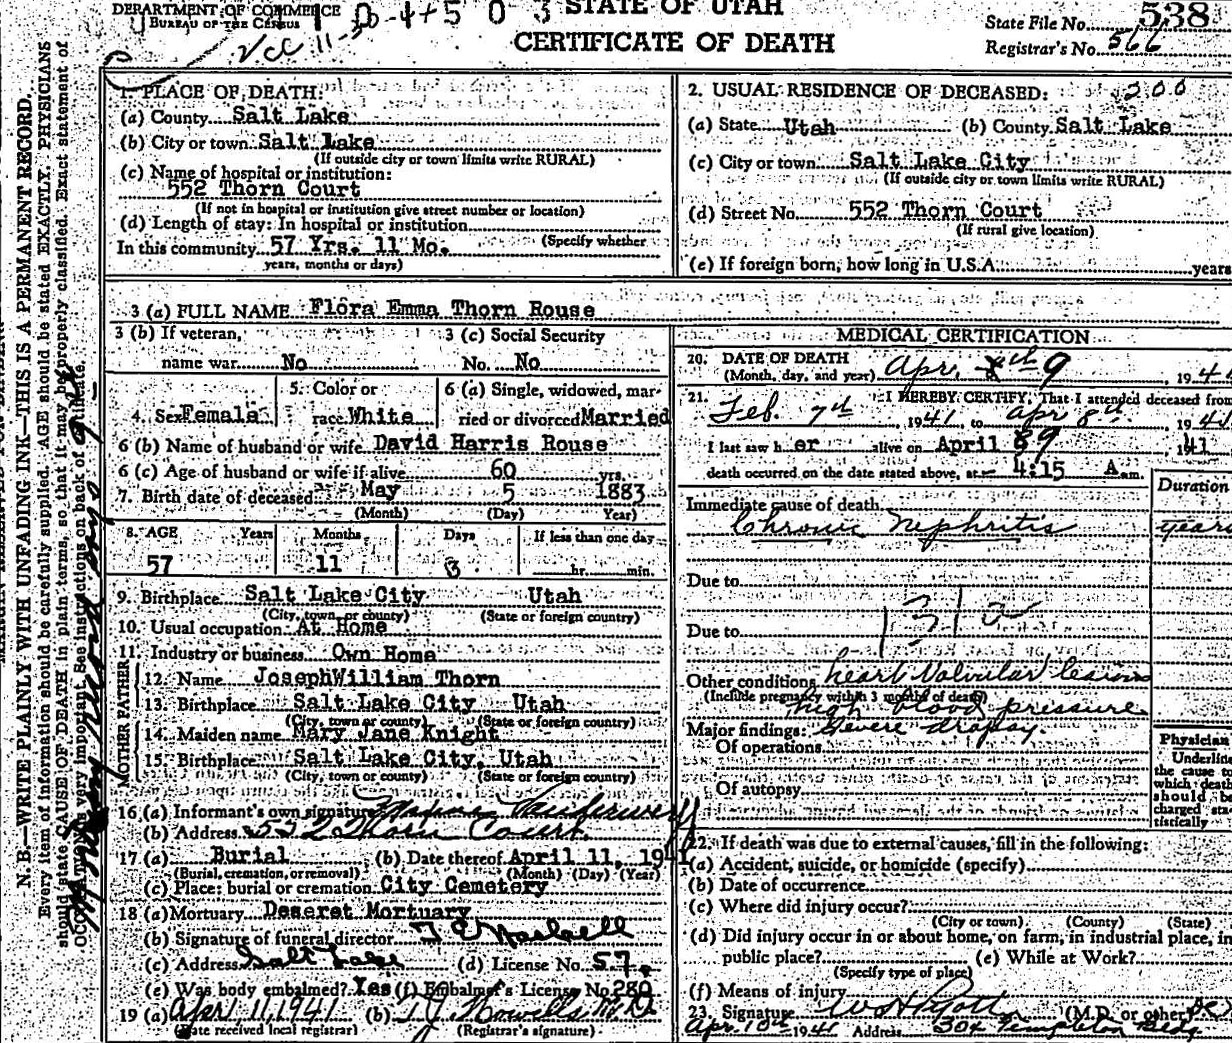 DEPARTMENT OF COMMERCE
BUREAU OF THE CENSUS
STATE OF UTAH
CERTIFICATE OF DEATH
State File No. 538
Registrar's No. 566
N. B.—WRITE PLAINLY WITH UNFADING INK—THIS IS A PERMANENT RECORD.
Every item of information should be carefully supplied. AGE should be stated EXACTLY. PHYSICIANS
should state CAUSE OF DEATH in plain terms, so that it may be properly classified. Exact statement of
very important. See instructions on back of
1. PLACE OF DEATH:
(a) County Salt Lake
(b) City or town Salt Lake
(If outside city or town limits write RURAL)
(c) Name of hospital or institution:
552 Thorn Court
(If not in hospital or institution give street number or location)
(d) Length of stay: In hospital or institution
(Specify whether
In this community 57 Yrs. 11 Mo.
years, months or days)
2. USUAL RESIDENCE OF DECEASED:
(a) State Utah (b) County Salt Lake
(c) City or town Salt Lake City
(If outside city or town limits write RURAL)
(d) Street No. 552 Thorn Court
(If rural give location)
(e) If foreign born, how long in U.S.A. years
3 (a) FULL NAME Flora Emma Thorn Rouse
3 (b) If veteran, 3 (c) Social Security
name war No No. No
4. Sex Female 5. Color or race White 6 (a) Single, widowed, married or divorced Married
6 (b) Name of husband or wife David Harris Rouse
6 (c) Age of husband or wife if alive 60 yrs.
7. Birth date of deceased May 5 1883
(Month) (Day) Year)
8. AGE Years Months Days If less than one day
57 11 3 hr. min.
9. Birthplace Salt Lake City Utah
(City, town or county) (State or foreign country)
10. Usual occupation At Home
11. Industry or business Own Home
FATHER
12. Name JosephWilliam Thorn
13. Birthplace Salt Lake City Utah
(City, town or county) (State or foreign country)
MOTHER
14. Maiden name Mary Jane Knight
15. Birthplace Salt Lake City, Utah
(City, town or county) (State or foreign country)
16 (a) Informant's own signature
(b) Address 552 Thorn Court
17 (a) Burial (b) Date thereof April 11, 1941
(Burial, cremation, or removal) (Month) (Day) (Year)
(c) Place: burial or cremation City Cemetery
18 (a) Mortuary Deseret Mortuary
(b) Signature of funeral director
(c) Address Salt Lake (d) License No. 57.
(e) Was body embalmed? Yes (f) Embalmer's License No. 280
19 (a) Apr 11, 1941 (b) T. J. Howells M D
(Date received local registrar) (Registrar's signature)
MEDICAL CERTIFICATION
20. DATE OF DEATH
(Month, day, and year) Apr. 9, 194
21. I HEREBY CERTIFY, That I attended deceased from
Feb. 7th 1941 to Apr 8th 194
I last saw her alive on April 89 1941
death occurred on the date stated above, at 4:15 A. m.
Duration
Immediate cause of death
Chronic Nephritis years
Due to
Due to
131 a
Other conditions heart Valvular lesions
(Include pregnancy within 3 months of death)
high blood pressure
Major findings: Severe dropsy.
Of operations
Of autopsy
Physician
Underline
the cause
which death
should be
charged sta-
tistically
22. If death was due to external causes, fill in the following:
(a) Accident, suicide, or homicide (specify)
(b) Date of occurrence
(c) Where did injury occur?
(City or town) (County) (State)
(d) Did injury occur in or about home, on farm, in industrial place, in
public place? (e) While at Work?
(Specify type of place)
(f) Means of injury
23. Signature (M.D. or other)
Apr. 10th 1941 Address 304 Templeton Bldg